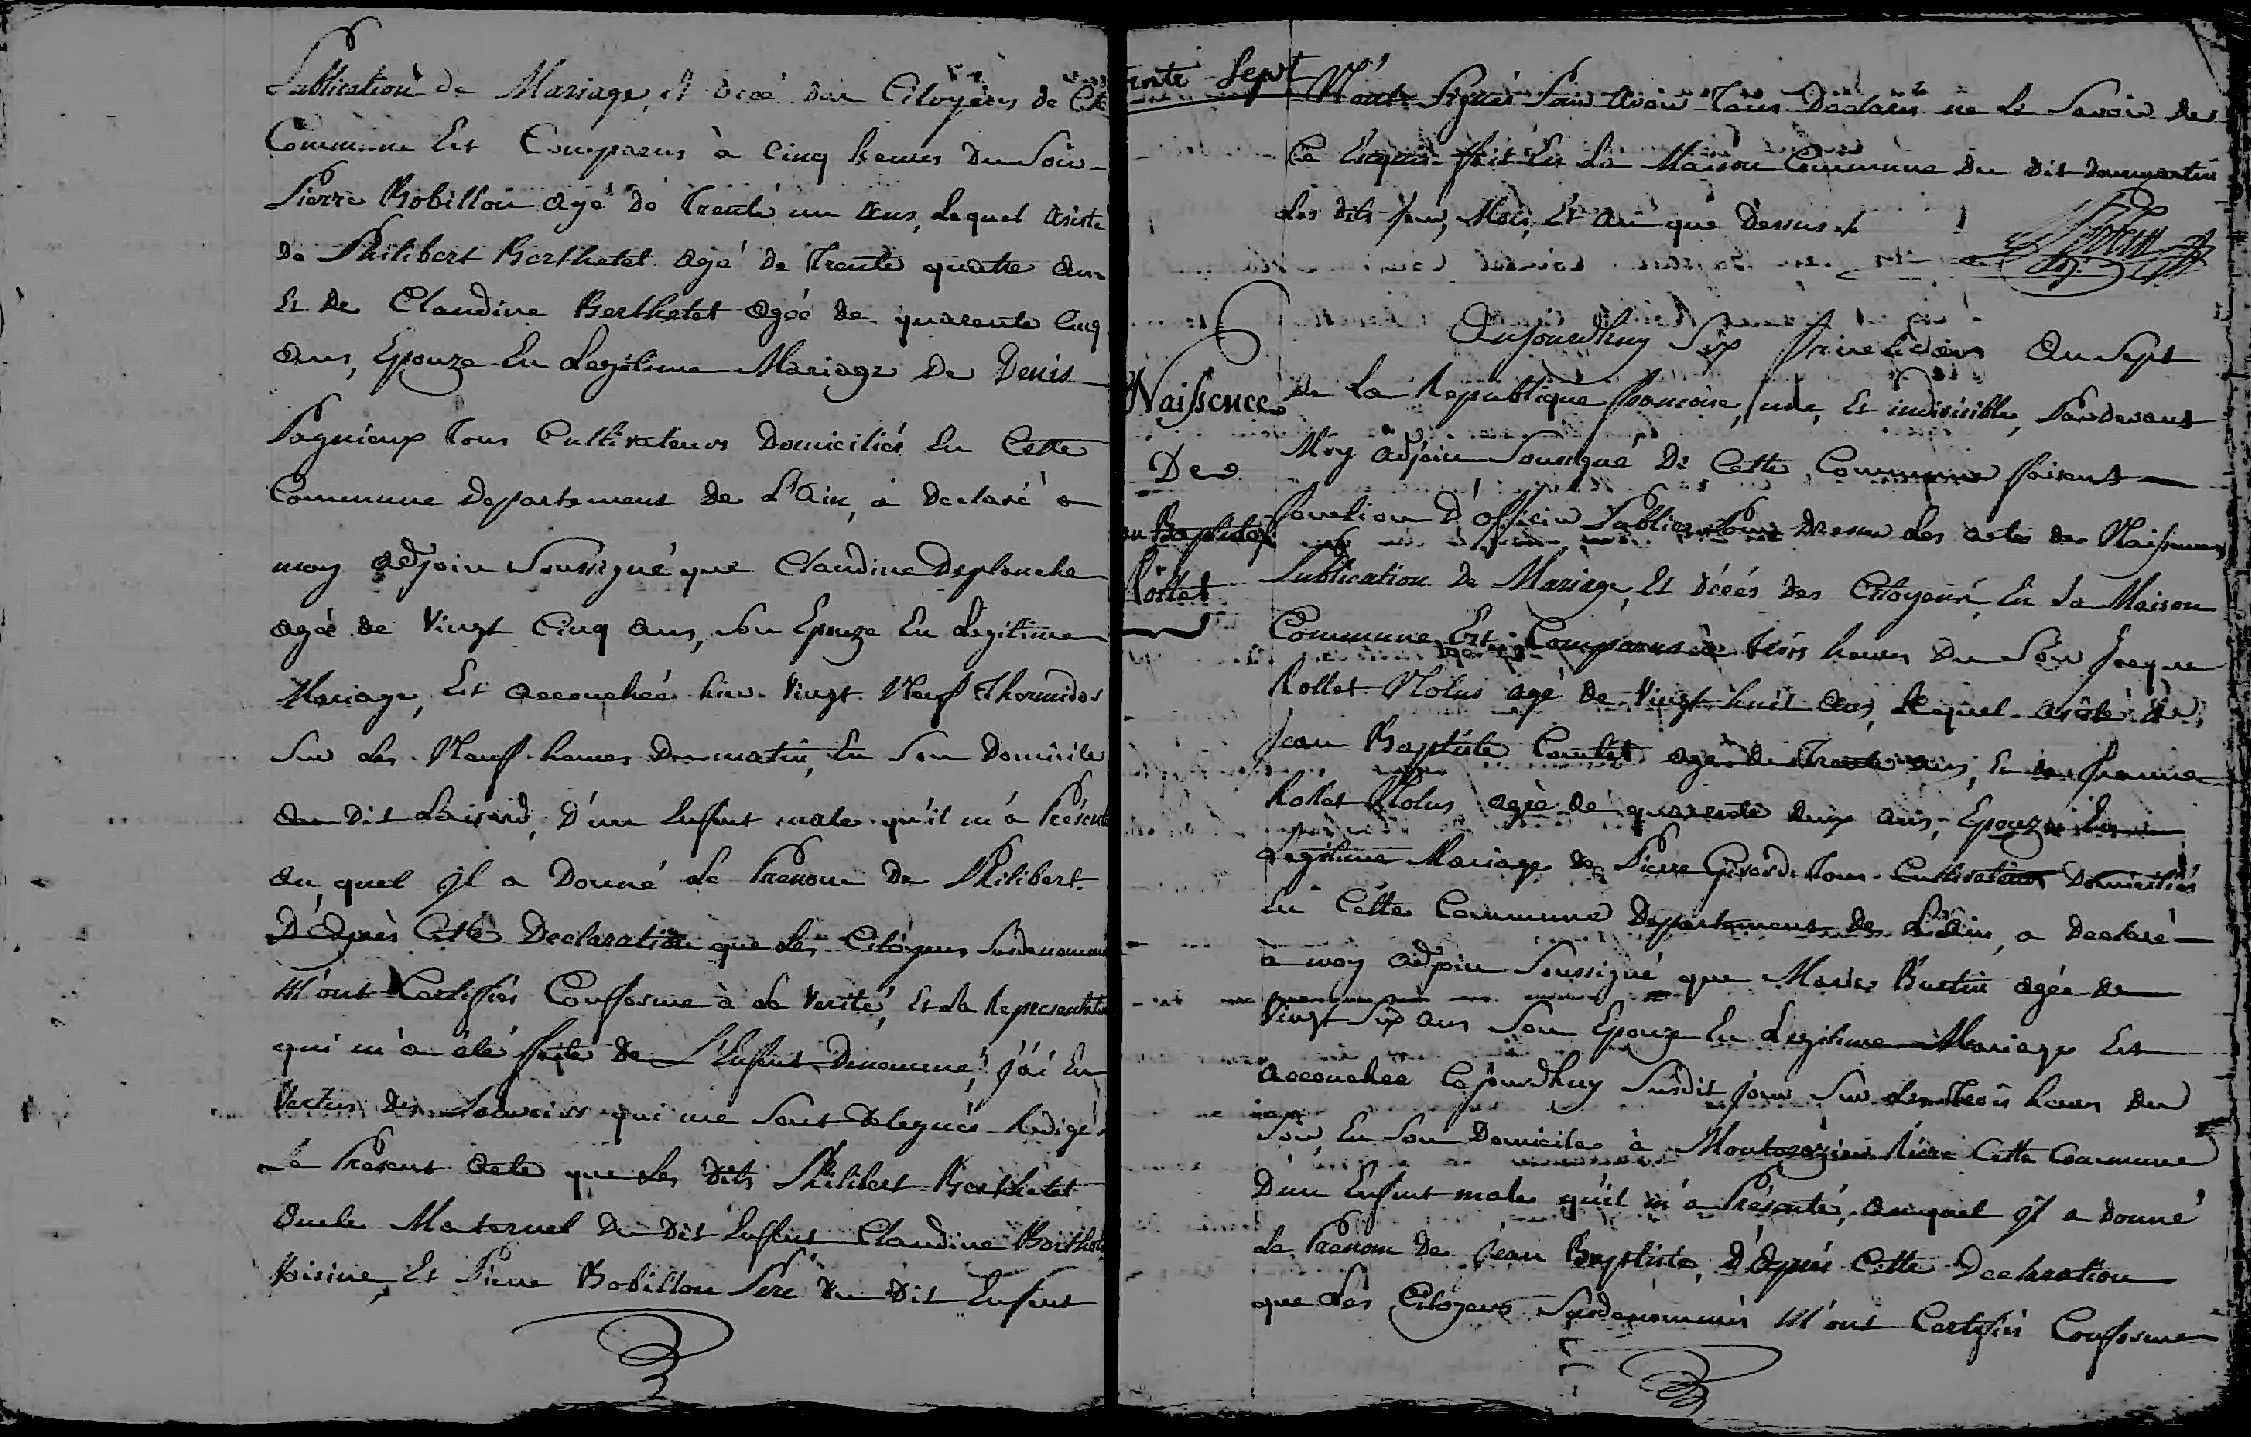 Publication de Mariage, et décé des Citoyens de Cette
Commune Est Comparus à Cinq heures Du Soir
Pierre Bobillon agé de Trente un ans, Lequel asisté
de Philibert Berthetet agé de Trente quatre ans
Et de Claudine Berthetet agéé de quarente Cinq
ans, Epouze En Legitime Mariage De Denis
Pagnieux Tous Cultivateurs Domiciliés En Cette
Commune Departement de L'Ain, a declaré a
moy adjoin Soussigné que Claudine Deplanche
agéé de Vingt Cinq ans, son Epouze En Legitime
Mariage, Est accouchéé hier Vingt Neuf Thermidor
Sur Les Neuf heures Du matin, En Son Domicile
Du Dit D'un Enfant male qu'il m'a Présenté
au quel Il a Donné Le Prenom De Philibert.
D'Après Cette Declaration que Les Citoyens Susdenommés
M'ont Certifiés Confforme à La Verité, Et la Representation
qui m'a été faite De L'Enfant Denommé, j'ai En
Vertus Des pouvoirs qui me Sont Delegués Redigé
Le Present acte que Les Dits Philibert Berthetet
Oncle Maternel Du Dit Enfant Claudine Berthetet
Voisine, Et Pierre Bobillon Pere Du Dit Enfant
Trente Sept
N'ont Signés Pour Avoir Tous Declarés ne Le Savoir De
Ce Enquis fait En La Maison Commune Du Dit Dommartin
Les Dits Jour, Mois, Et An que Dessus
Naissence
De
Jean Baptiste
Rollet
Aujourdhuy Six An Sept
De La Republique françoise, une, Et indivisible, Pardevant
Moy adjoin Soussigné De Cette Commune faisant
fonction D'officier Public Pour Dresser Les actes De Naissences
Publication De Mariage, Et décés Des Citoyens En La Maison
Commune Est Comparus à Trois heures Du Soir Jacque
Rollet Nolus agé De Vingt huit ans, Lequel asisté De
Jean Baptiste agé De Trente ans, Et De
Rollet Nolus agéé de quarente Deux ans, Epouze En
Legitime Mariage De Pierre Girard Tous Cultivateurs Domiciliés
En Cette Commune Departement De L'Ain, a Declaré
à moy adjoin Soussigné que Marie agée De
Vingt Six ans Son Epouze En Legitime Mariage Est
accouchée Cejourdhuy Susdit jour Sur Les Trois heures Du
Soir En Son Domicile à Cette Commune
D'un Enfant male qu'il m'a Présenté, auquel Il a Donné
Le Prenom De Jean Baptiste, D'Aprés Cette Declaration
que Les Citoyens Susdenommés M'ont Certifiés Confforme